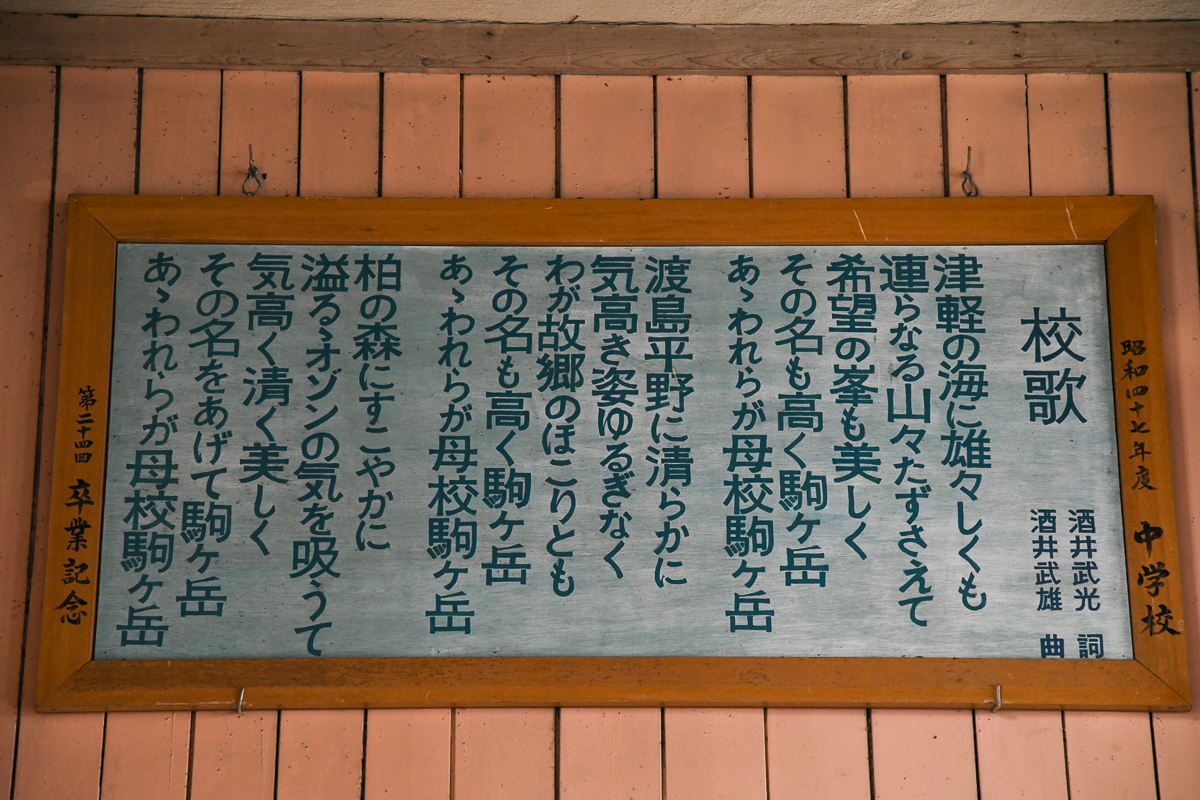 昭和四十七年度 中学校
校歌
酒井武光 詞
酒井武雄 曲
津軽の海に雄々しくも
連らなる山々たずさえて
希望の峯も美しく
その名も高く駒ヶ岳
あゝわれらが母校駒ヶ岳
渡島平野に清らかに
気高き姿ゆるぎなく
わが故郷のほこりとも
その名も高く駒ヶ岳
あゝわれらが母校駒ヶ岳
柏の森にすこやかに
溢るゝオゾンの気を吸うて
気高く清く美しく
その名をあげて駒ヶ岳
あゝわれらが母校駒ヶ岳
第二十四回 卒業記念